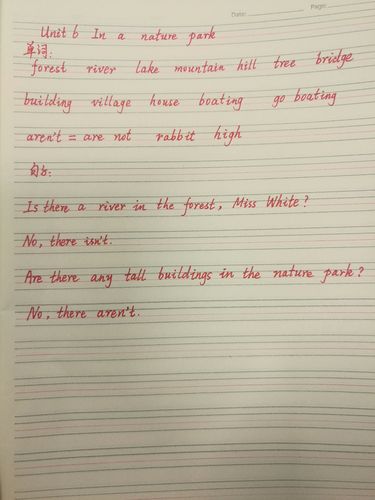 Date:
Page:
Unit 6 In a nature park
单词:
forest river lake mountain hill tree bridge
building village house boating go boating
aren't = are not rabbit high
句子:
Is there a river in the forest, Miss White?
No, there isn't.
Are there any tall buildings in the nature park?
No, there aren't.